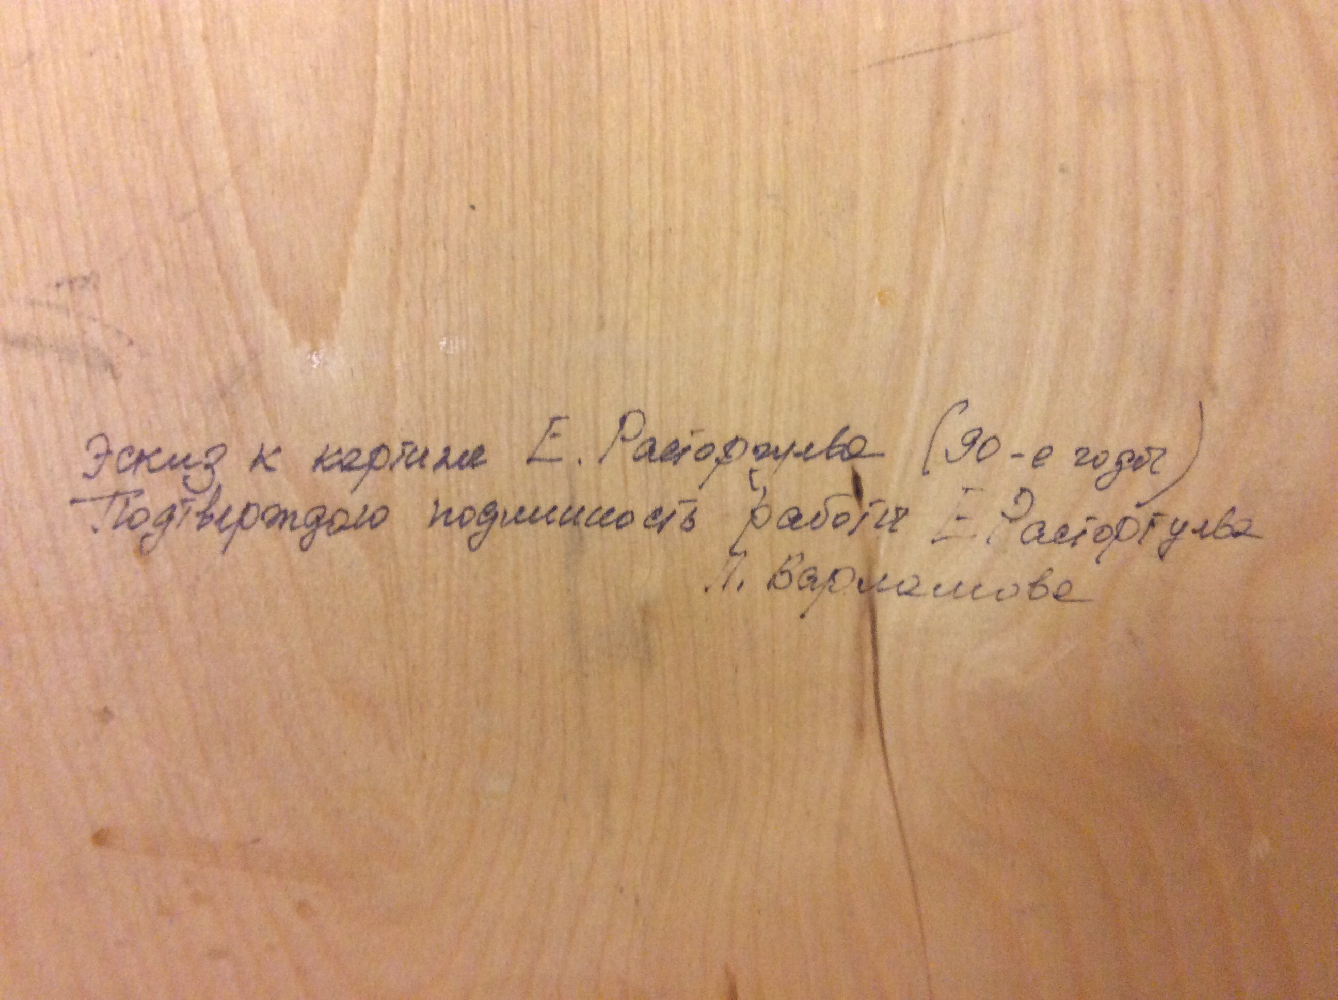 Эскиз к картине Е. Расторгуева (90-е годы)
Подтверждаю подлинность работы Е Расторгуева
Варламова